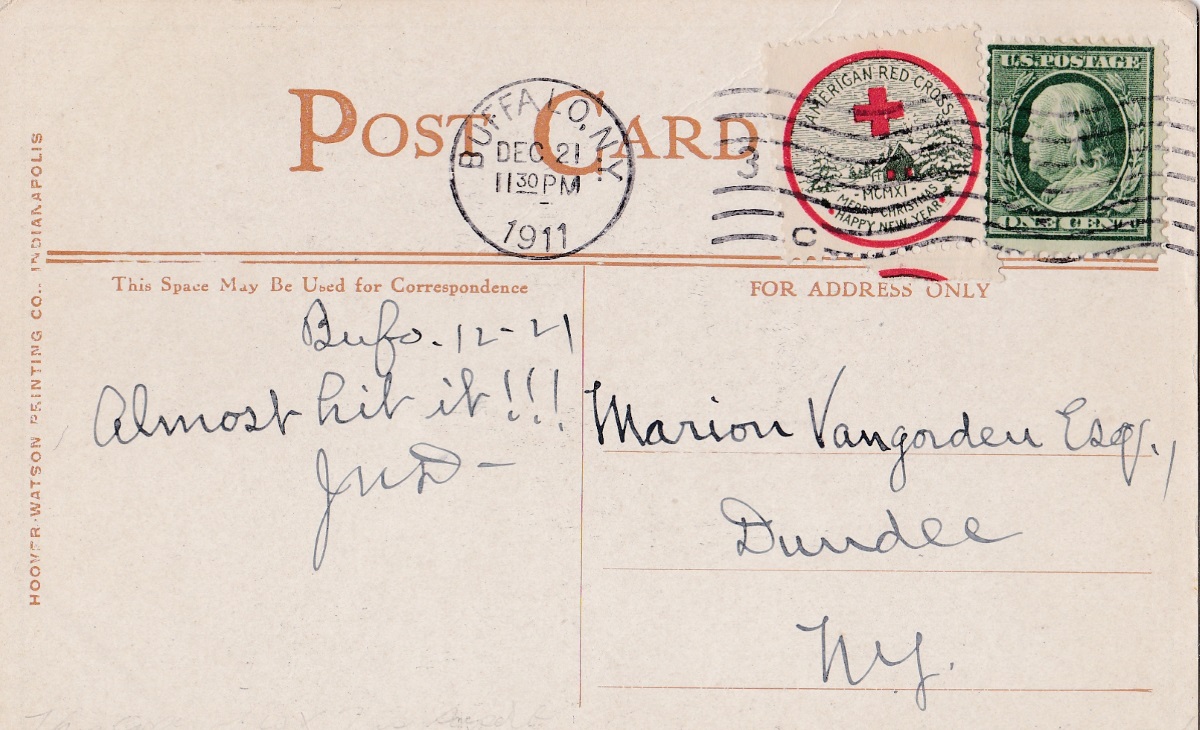 POST CARD
BUFFALO, N.Y.
DEC 21
11 30 PM
1911
3
C
AMERICAN RED CROSS
MCMXI
MERRY CHRISTMAS
HAPPY NEW YEAR
U.S. POSTAGE
ONE CENT
This Space May Be Used for Correspondence
FOR ADDRESS ONLY
Bufo. 12-21
Almost hit it!!!
Marion Vangorden Esq.,
Dundee
N.Y.
HOOVER-WATSON PRINTING CO., INDIANAPOLIS